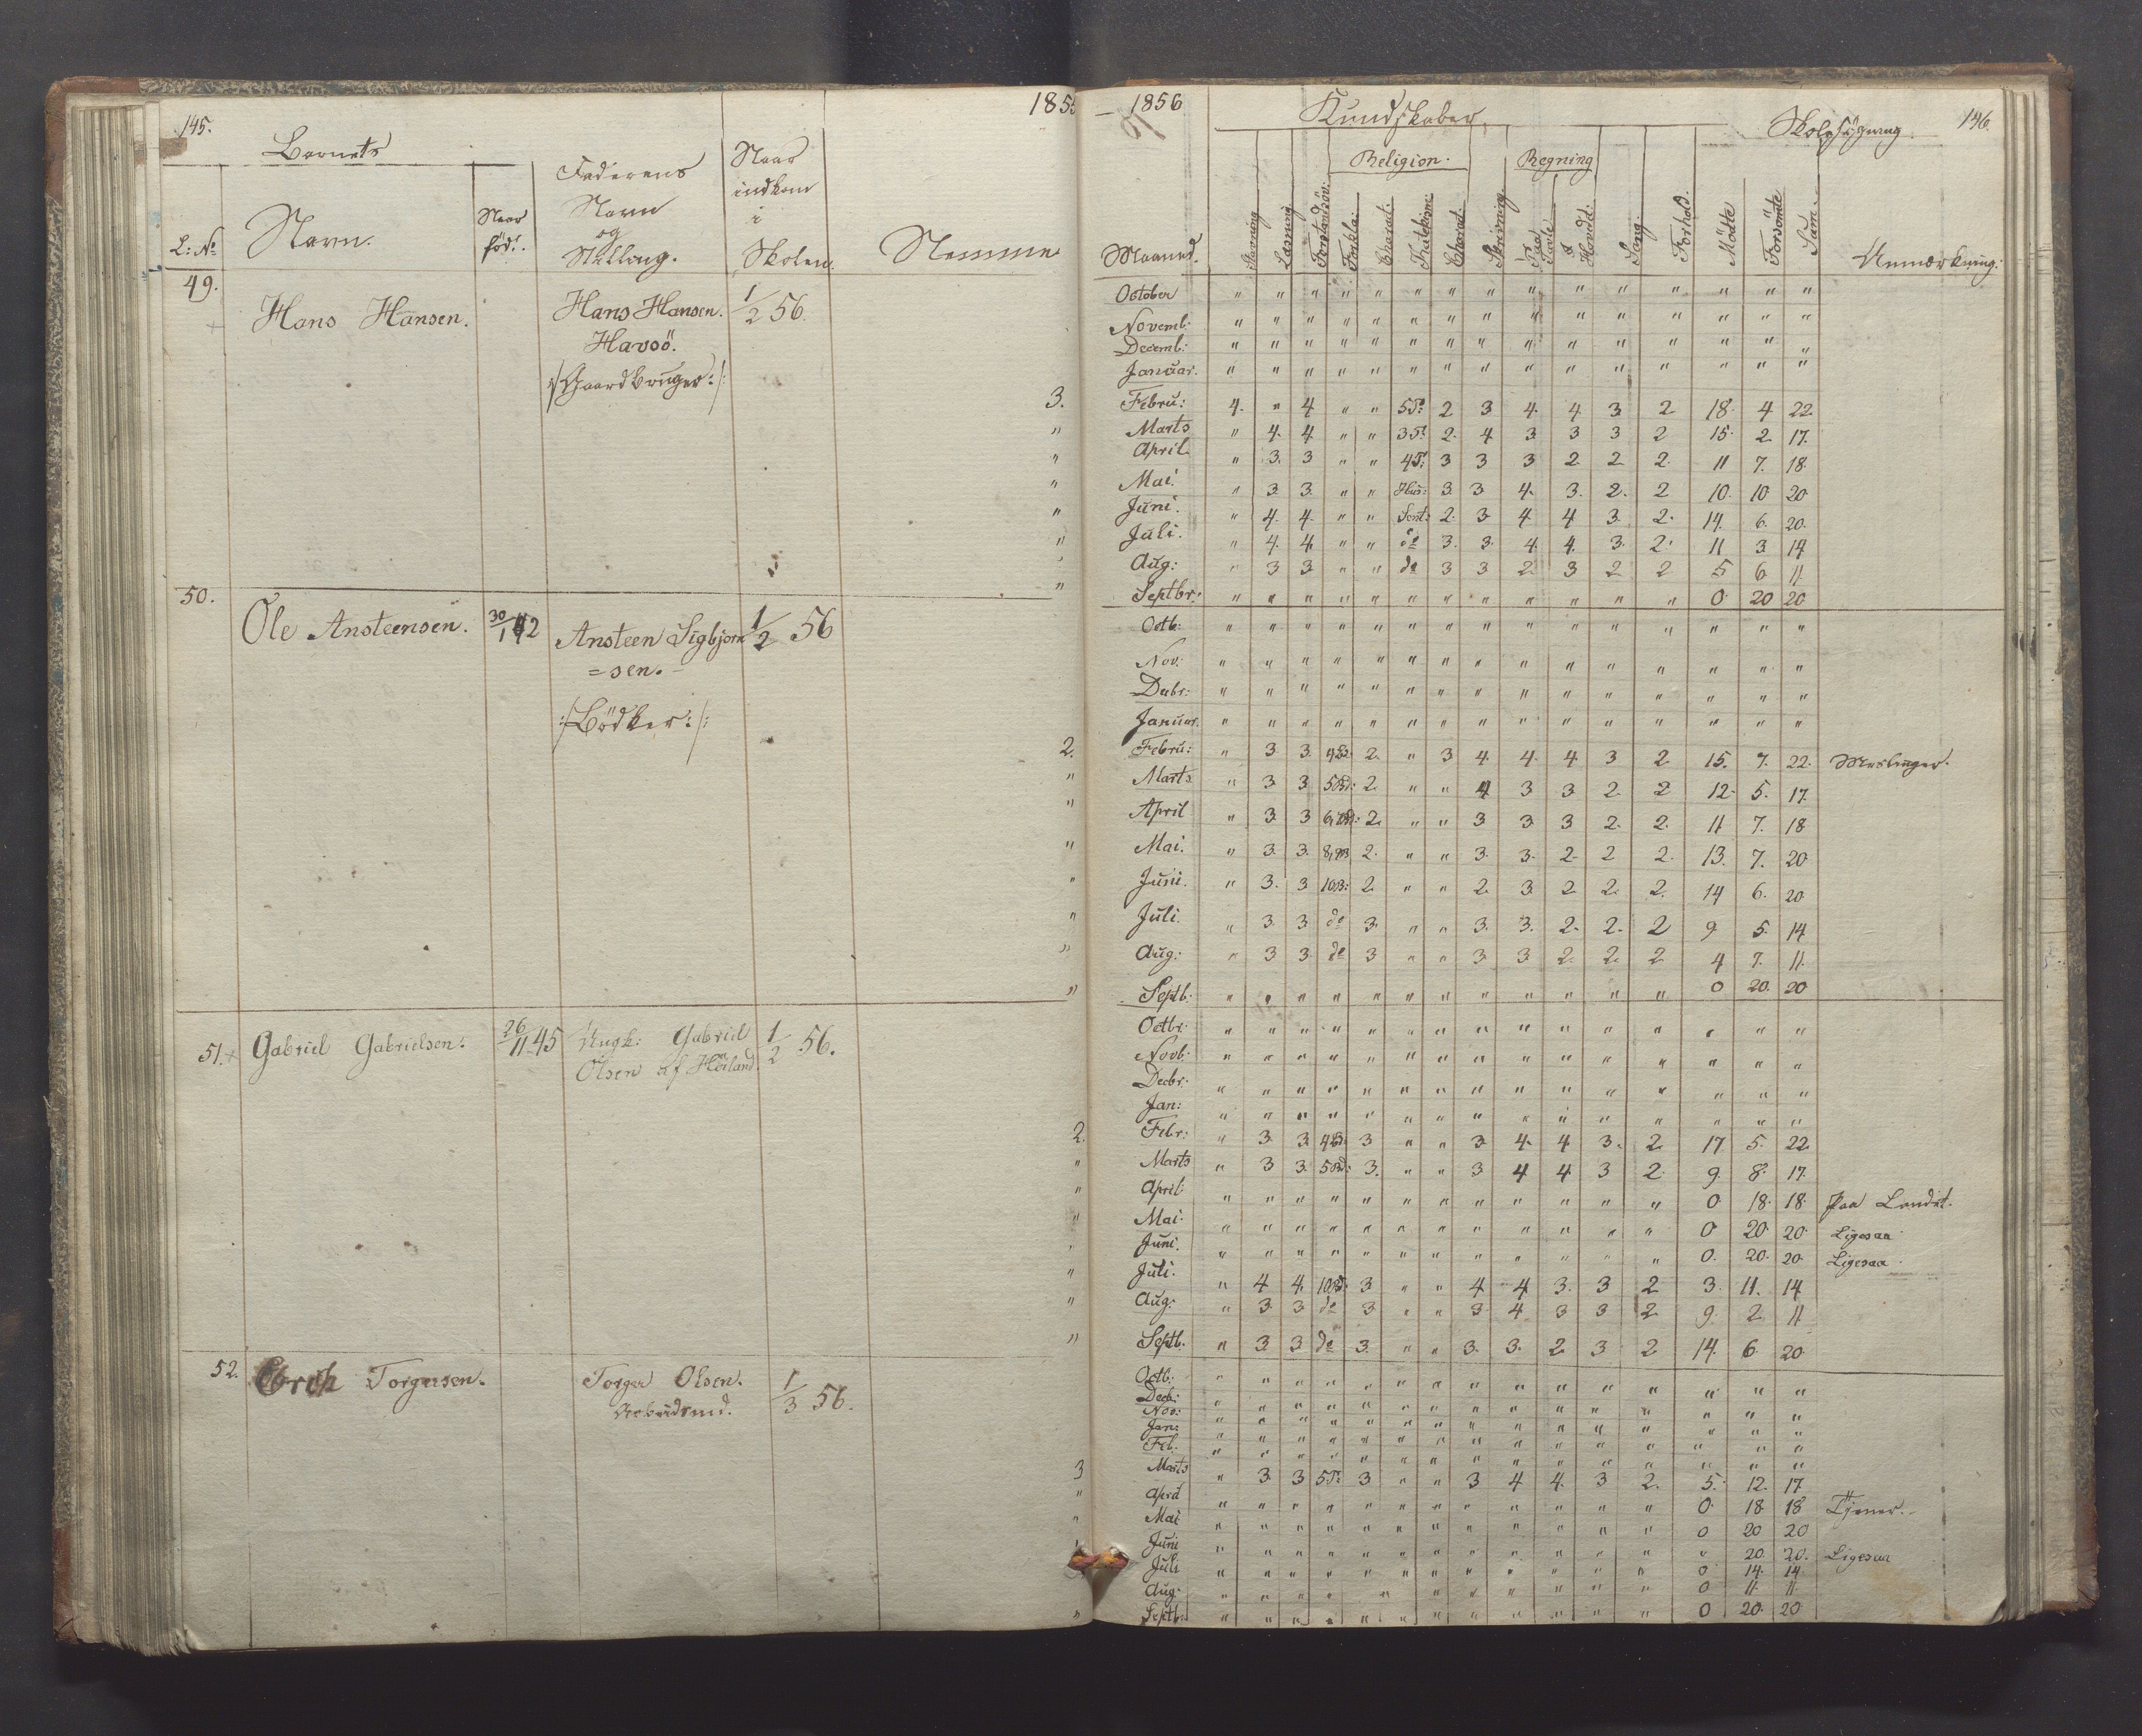 145.
1855
Barnets
L: No
Navn.
Naar født.
Faderens
Navn
og
Stilling.
Naar
indkom
i
Skolen.
Nemme
49.
Hans Hansen.
Hans Hansen.
Havsö.
/:Gaardbruger:/
1/2 56.
3.
50.
Ole Ansteensen.
30/1 42
Ansteen Sigbjörn
=sen.
/:Bödker:/
1/2 56
2.
51.
Gabriel Gabrielsen.
26/11 45
Ungk: Gabriel
Olsen af Höiland.
1/2 56.
2.
52.
Torgersen.
Torger Olsen.
Arbeidsmd.
1/3 56.
3
— 1856
146.
Kundskaber.
Skolesögning
Religion.
Regning
Maaned.
Stavning
Læsning
Forstandsöv:
Forkla:
Charact:
Katekism:
Charact:
Skrivning
Paa Tavle
I Hovedet:
Sang.
Forhold.
Mödte
Forsömte
Sum.
Anmærkning:
October " " " " " " " " " " " " " " "
Novemb: " " " " " " " " " " " " " " "
Decemb: " " " " " " " " " " " " " " "
Januar. " " " " " " " " " " " " " " "
Febru: 4. " 4 " " 5P: 2 3 4. 4 3 2 18. 4 22.
Marts " 4. 4 " " 3P: 2. 4 3 3 3 2 15. 2. 17.
April " 3. 3 " " 4P: 3 3 3 2. 2 2. 11 7. 18.
Mai. " 3. 3. " " Hus: 3. 3 4. 3. 2. 2 10. 10 20
Juni. " 4. 4. " " 2. 3. 4 4 3. 2. 14. 6. 20.
Juli. " 4. 4 " " do 3. 3. 4. 4. 3. 2. 11 3 14
Aug: " 3 3 " " do 3 3 2 3 2 2 5 6 11.
Septbr: " " " " " " " " " " " " 0 20 20
Octb: " " " " " " " " " " " " " " "
Nov: " " " " " " " " " " " " " " "
Decbr: " " " " " " " " " " " " " " "
Januar. " " " " " " " " " " " " " " "
Febru: " 3. 3. 4B: 2. " 3 4. 4. 4. 3 2. 15. 7. 22. Meslinger.
Marts " 3. 3 5Bd: 2. " " 4 3 3 2. 2 12. 5. 17.
April " 3. 3 2. " " 3 3 3 2. 2. 11 7. 18
Mai. " 3. 3. 2. " " 3. 3. 2. 2 2. 13. 7. 20
Juni. " 3. 3 10B: 2. " " 2. 3. 2. 2. 2. 14 6. 20
Juli. " 3. 3 do 3. " " 3. 3. 2. 2. 2 9 5. 14
Aug: " 3 3 do 3 " " 3 3 2. 2. 2 4 7. 11.
Septb: " " " " " " " " " " " " 0 20. 20
Octbr: " " " " " " " " " " " " " " "
Novb: " " " " " " " " " " " " " " "
Decbr: " " " " " " " " " " " " " " "
Jan: " " " " " " " " " " " " " " "
Febr: " 3. 3. 4B: 3 " " 3 4. 4 3. 2. 17 5. 22
Marts " 3 3. 5Bd: 3. " " 3 4 4. 3 2. 9. 8. 17.
April: " " " " " " " " " " " " 0 18. 18 Paa Landet.
Mai: " " " " " " " " " " " " 0 20. 20 Ligesaa
Juni. " " " " " " " " " " " " 0. 20. 20 Ligesaa
Juli. " 4 4 10B: 3 " " 4 4 3. 3 2 3. 11. 14
Aug: " 3. 3. do 3. " " 3 4 3 3 2 9. 2. 11
Septb. " 3 3 do 3. " " 3. 3. 2 3 2 14. 6. 20
Octb: " " " " " " " " " " " " " " "
Decb: " " " " " " " " " " " " " " "
Nov: " " " " " " " " " " " " " " "
Jan: " " " " " " " " " " " " " " "
Feb. " " " " " " " " " " " " " " "
Marts " 3. 3 5P: 3 " " 3 4 4. 3 2. 5. 12. 17
April " " " " " " " " " " " " 0. 18 18 Tjener.
Mai " " " " " " " " " " " " 0 20 20
Juni " " " " " " " " " " " " " 20. 20. Ligesaa
Juli " " " " " " " " " " " " 0 14. 14.
Aug: " " " " " " " " " " " " 0 11. 11.
Septb: " " " " " " " " " " " " 0 20. 20